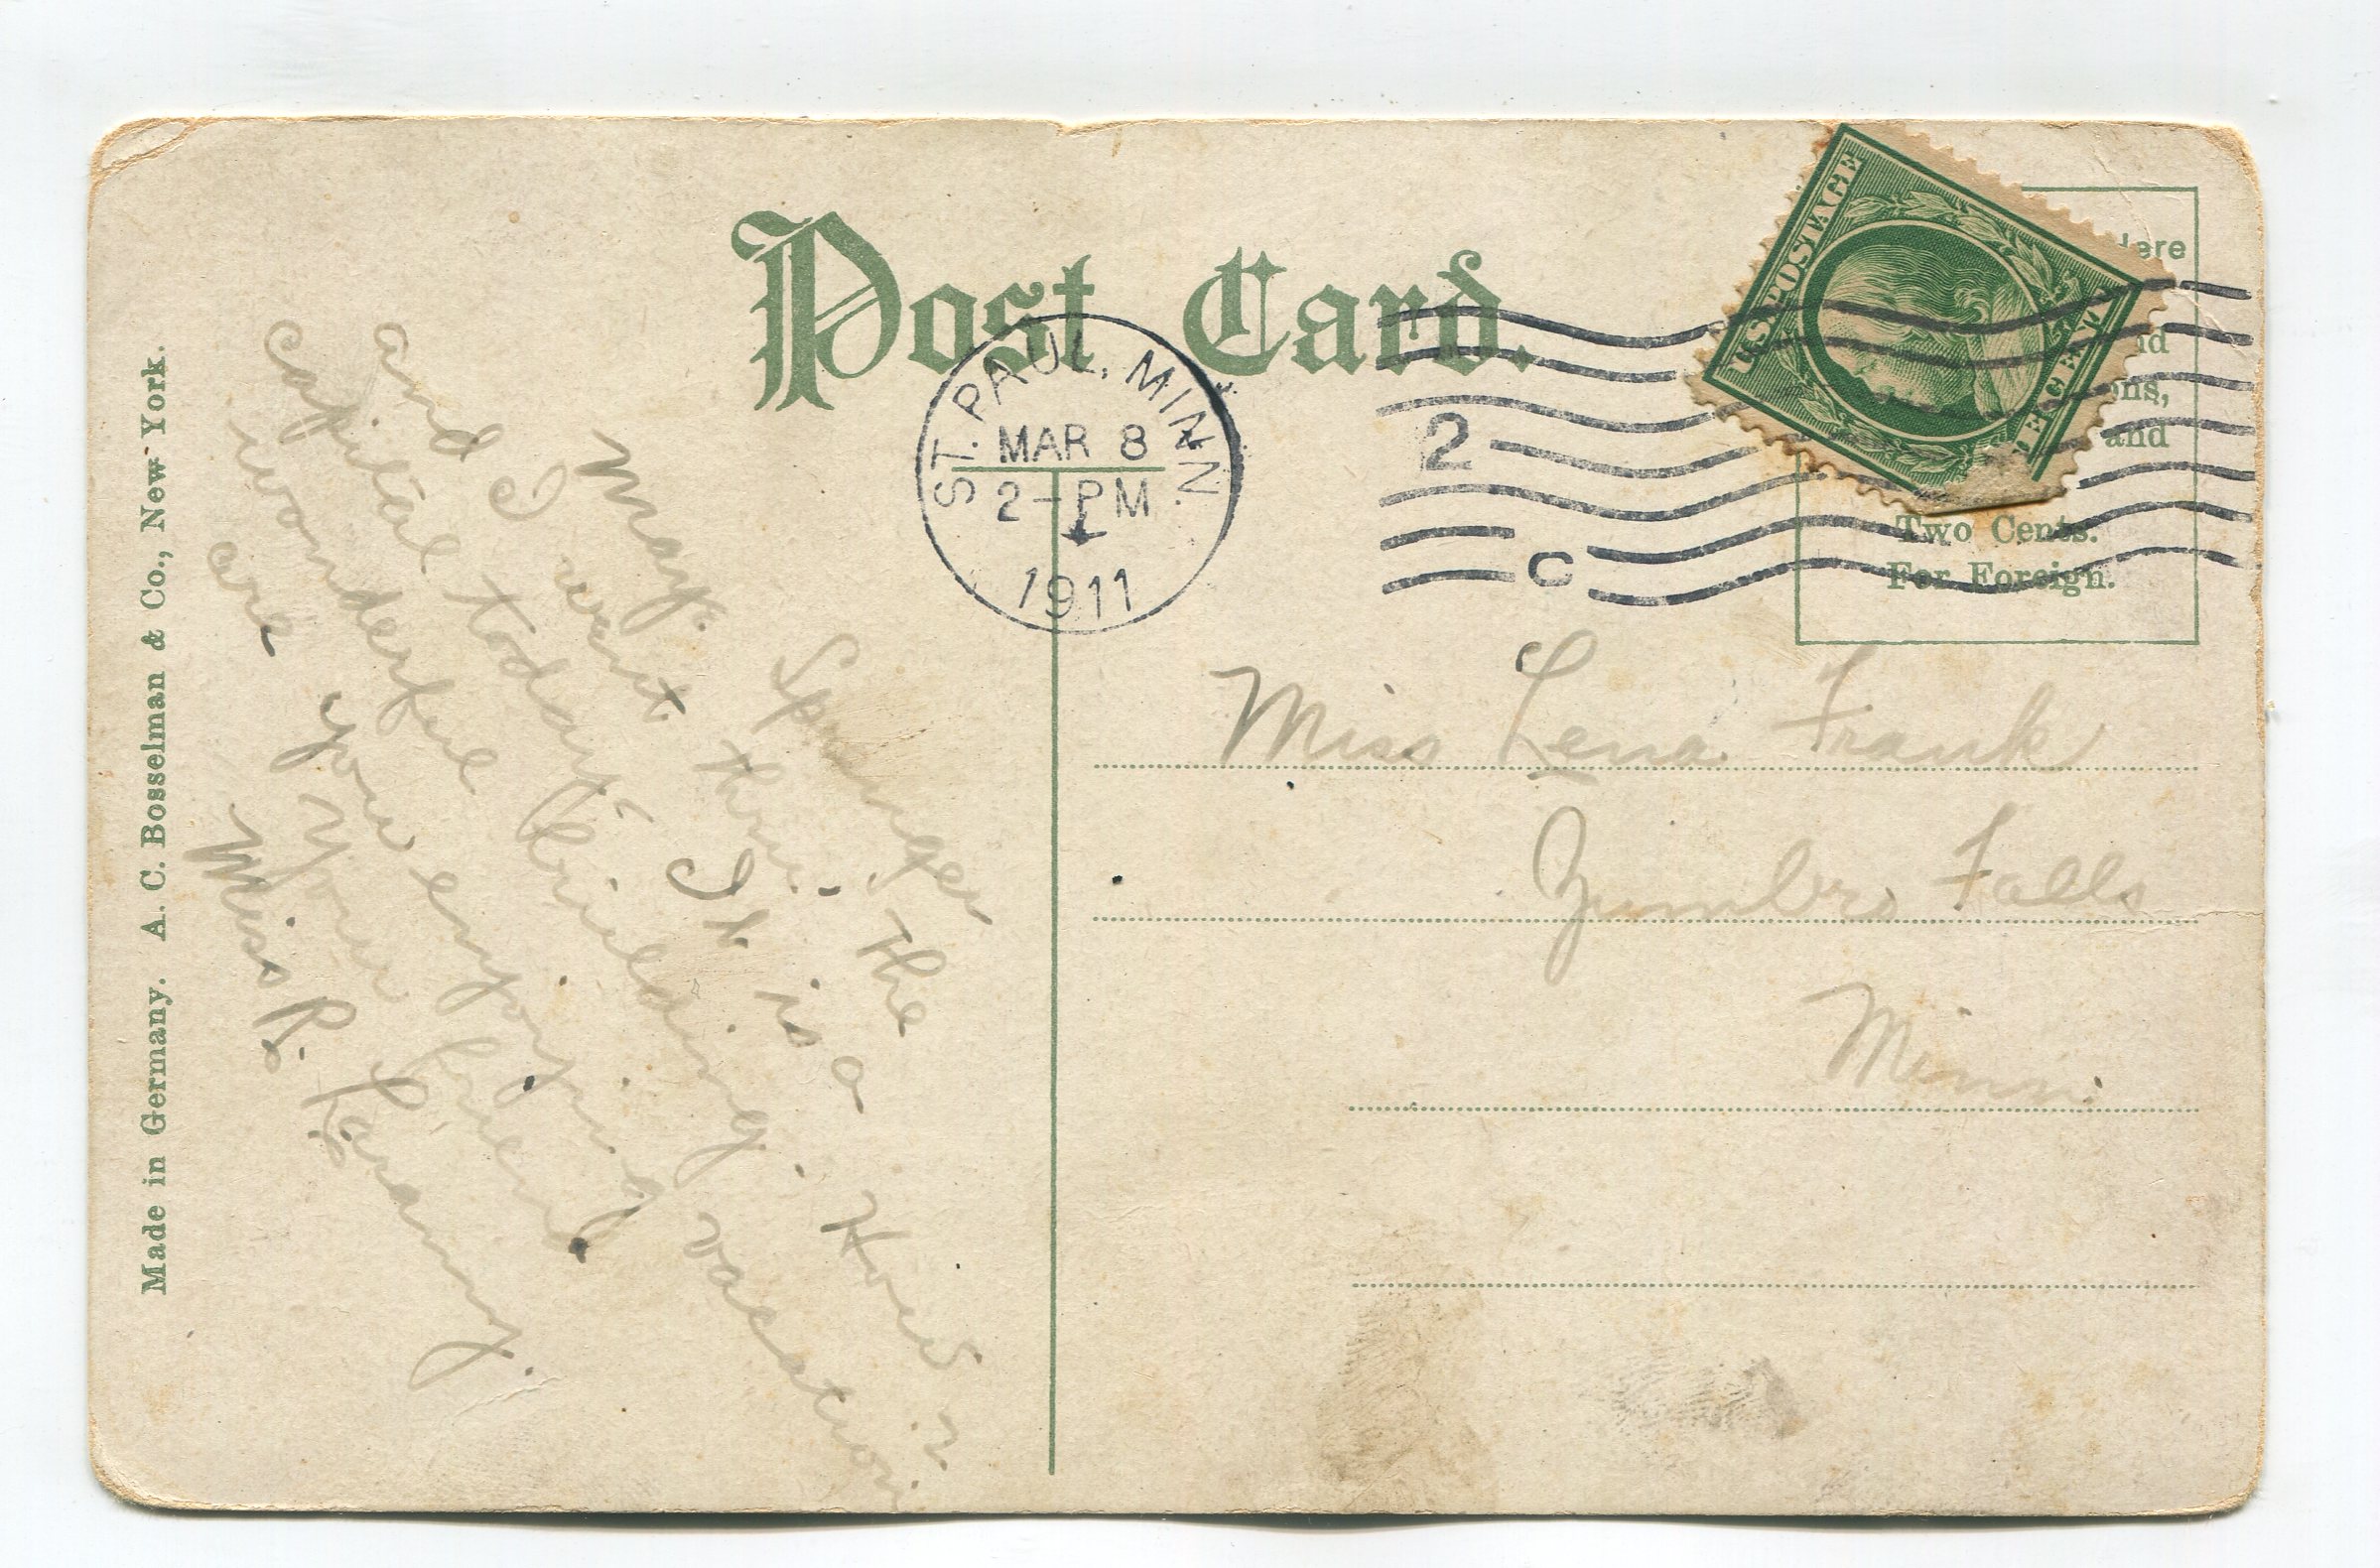 Post Card.
ST. PAUL, MINN.
MAR 8
2-PM
1911
2
C
U.S. POSTAGE
CENT
and
Two Cents.
For Foreign.
Made in Germany. A. C. Bosselman & Co., New York.
May. Springer
and I went thru. the
capital today. It is a
wonderful building. How
are you enjoying vacation?
Your friend
Miss R.
Miss Lena Frank
Zumbro Falls
Minn.